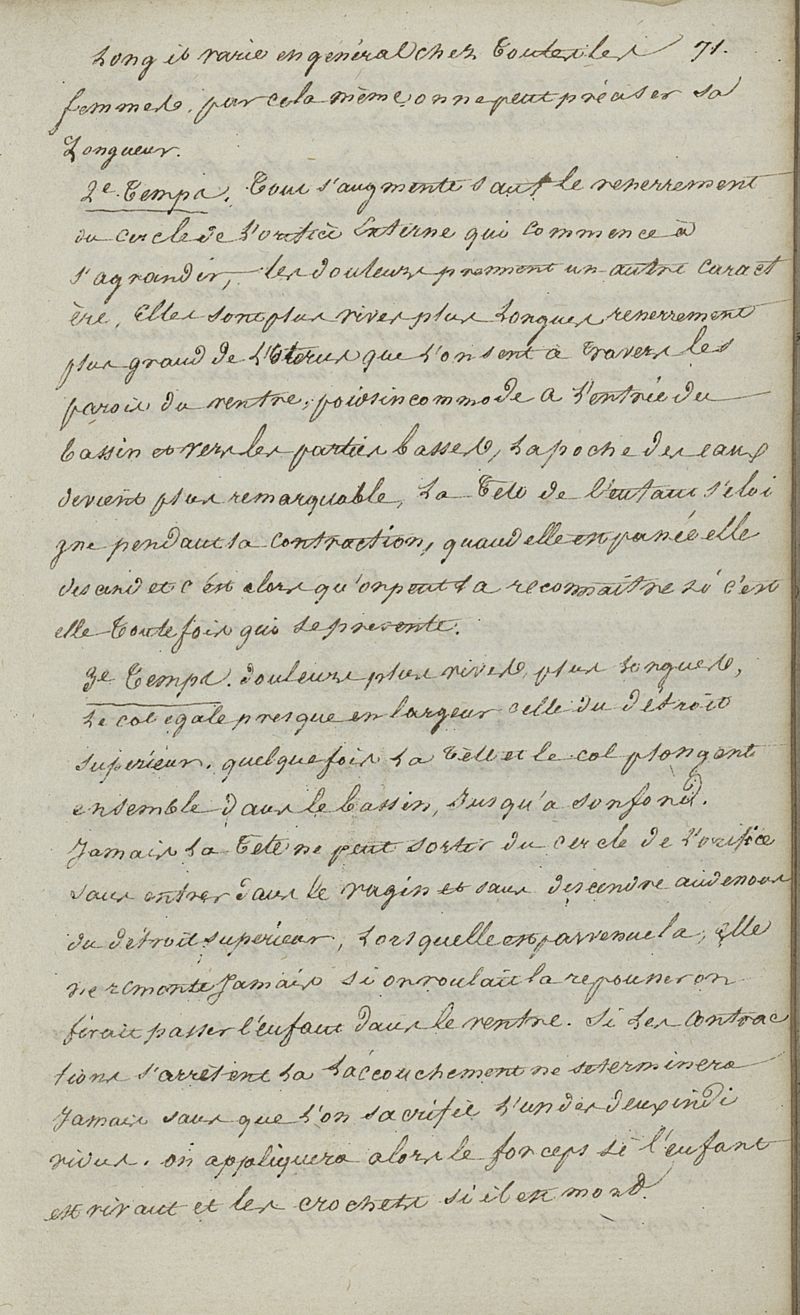 Long il varie en général chez Toutes les 71.
femmes. par cela même on ne peut préciser sa
Longueur.
2e Temps. Tout s'augmente sauf le resserrement
du cercle de L'orifice Externe qui commence à
s'agrandir, les douleurs prennent un autre caract
ère, Elles sont plus vives plus Longues resserrement
plus grand de L'Uterus que l'on sent a travers les
parois du ventre, poids incommode a L'entrée du
bassin et vers les parties basses, La poche des eaux
devient plus remarquable, La Tete de l'enfant s'eloi
gne pendant la contraction, quand elle est passée elle
descend et c'est alors qu'on peut La reconnaitre si c'est
elle Toutefois qui se presente.
3e Temps. douleurs plus vives, plus Longues,
Le col egale presque en largeur celle du détroit
supérieur. quelquefois La Tête et le col plongent
ensemble dans le bassin, Jusqu'a son fond.
Jamais La Tete ne peut sortir du cercle de L'orifice
sans entrer dans le vagin et sans descendre audessous
du détroit supérieur, Lorsquelle est parvenue la, Elle
ne remonte Jamais si on voulait la repousser on
ferait passer l'enfant dans le ventre. Si Les contrac
tions s'arretent La L'accouchement ne se terminera
Jamais sans que L'on sacrifie L'un des deux indi
vidus. on appliquera alors le forceps si l'enfant
est vivant et les crochets si il est mord.